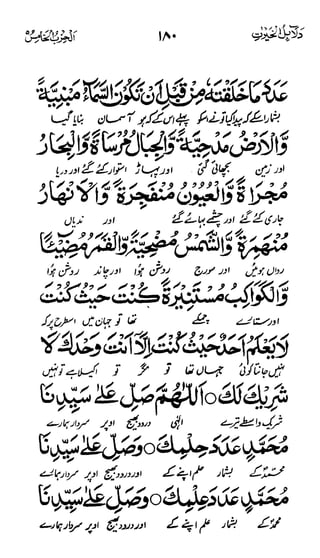 دلائل الخیرات ۱۸۰ الحزب الخامس
عَدَدَ مَا خَلَقْتَهٗ مِنْ قَبْلِ اَنْ تَكُوْنَ السَّمَآءُ مَبْنِيَّةً
بشمار اسکے کہ پیدا کیا تونے اسکو پہلے اس کے کہ ہو آسمان بنایا گیا
وَّالْاَرْضُ مَدْحِيَّةً وَّالْجِبَالُ مُرْسَاةً وَّالْبِحَارُ
اور زمین بچھائی گئی اور پہاڑ استوار کئے گئے اور دریا
مُجْرَاةً وَّالْعُيُوْنُ مُنْفَجِرَةً وَّالْاَنْهَارُ
جاری کئے گئے اور چشمے بہائے گئے اور ندیاں
مُنْهَمِرَةً وَّالشَّمْسُ مُضْحِيَةً وَّالْقَمَرُ مُضِيْئًا
رواں ہوئیں اور سورج روشن ہوا اور چاند روشن ہوا
وَّالْكَوَاكِبُ مُسْتَنِيْرَةً كُنْتَ حَيْثُ كُنْتَ
اور ستارے چمکے تھا تو جہاں میں اسطرح پر کہ
لَا يَعْلَمُ اَحَدٌ حَيْثُ كُنْتَ اِلَّآ اَنْتَ وَحْدَكَ لَا
نہیں جانتا کوئی جہاں تھا تو مگر تو اکیلا ہے تو نہیں
شَرِيْكَ لَكَ ○ اَللّٰهُمَّ صَلِّ عَلٰى سَيِّدِنَا
شریک واسطے تیرے الٰہی درود بھیج اوپر سردار ہمارے
مُحَمَّدٍ عَدَدَ حِلْمِكَ ○ وَصَلِّ عَلٰى سَيِّدِنَا
محمدؐ کے بشمار حلم اپنے کے اور درود بھیج اوپر سردار ہمارے
مُحَمَّدٍ عَدَدَ عِلْمِكَ ○ وَصَلِّ عَلٰى سَيِّدِنَا
محمدؐ کے بشمار علم اپنے کے اور درود بھیج اوپر سردار ہمارے